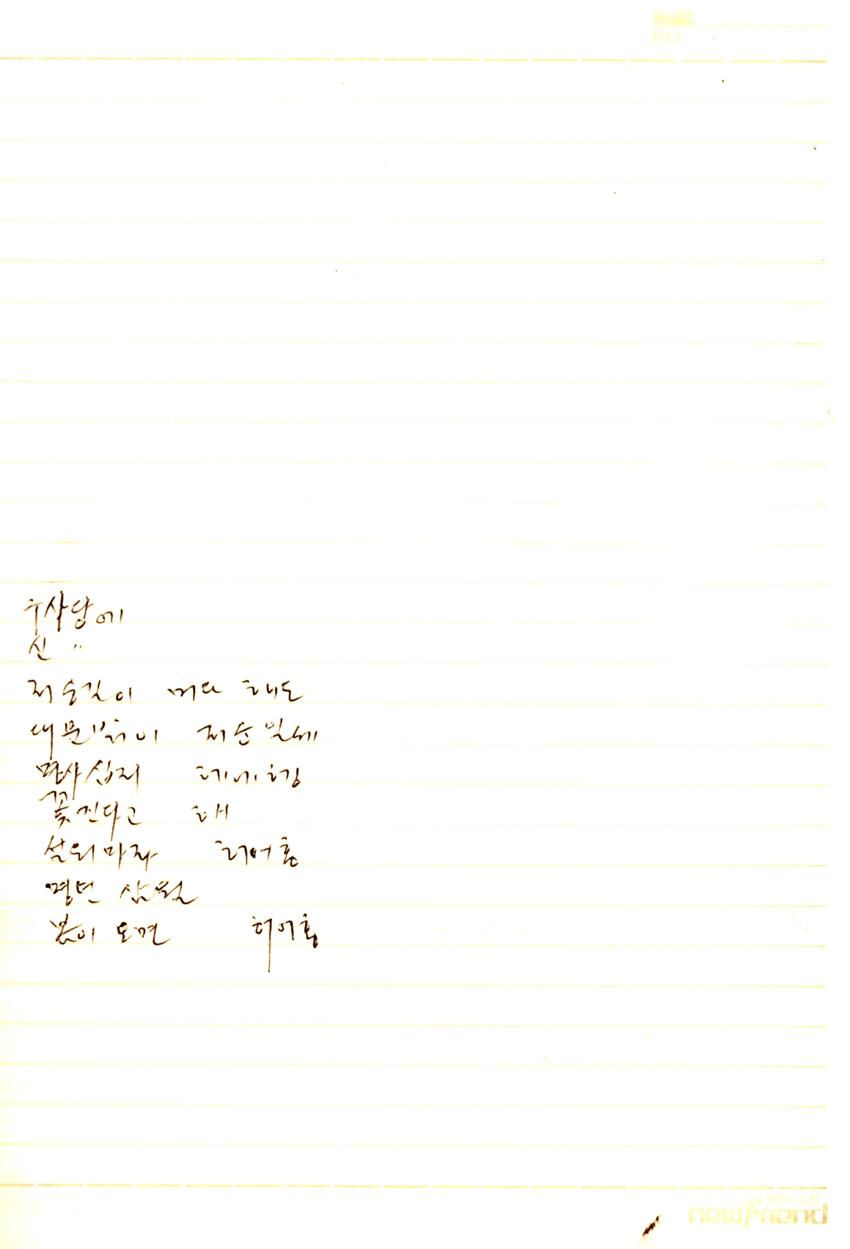 구사당에
신 "
저승길이 머다 해도
대문밖이 저승일세
명사십리 해
꽃진다고 해
설워마라 허어홍
명년 삼월
봄이 오면 허어홍
NO
newfriend